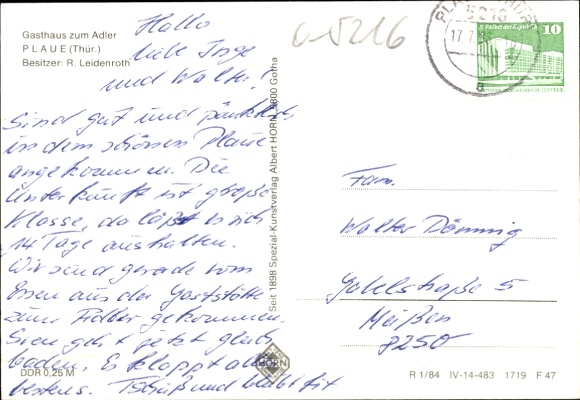 Gasthaus zum Adler
PLAUE (Thür.)
Besitzer: R. Leidenroth
Hallo
liebe Inge
und Walter!
Sind gut und pünktlich
in dem schönen Plaue
angekommen. Die
Unterkunft ist große
Klasse, da läßt es sich
14 Tage aushalten.
Wir sind gerade vom
Essen aus der Gaststätte
zum Adler gekommen.
geht jetzt gleich
baden. Es klappt alles
bestens. Tschüß und bleibt fit
DDR 0,25 M
Seit 1898 Spezial-Kunstverlag Albert HORN, 5800 Gotha
HORN
5216
PLAUE
5216
17.7.
a
10
Fam.
Walter Dönnig
Gabelstraße 5
Meißen
8250
R 1/84 IV-14-483 1719 F 47